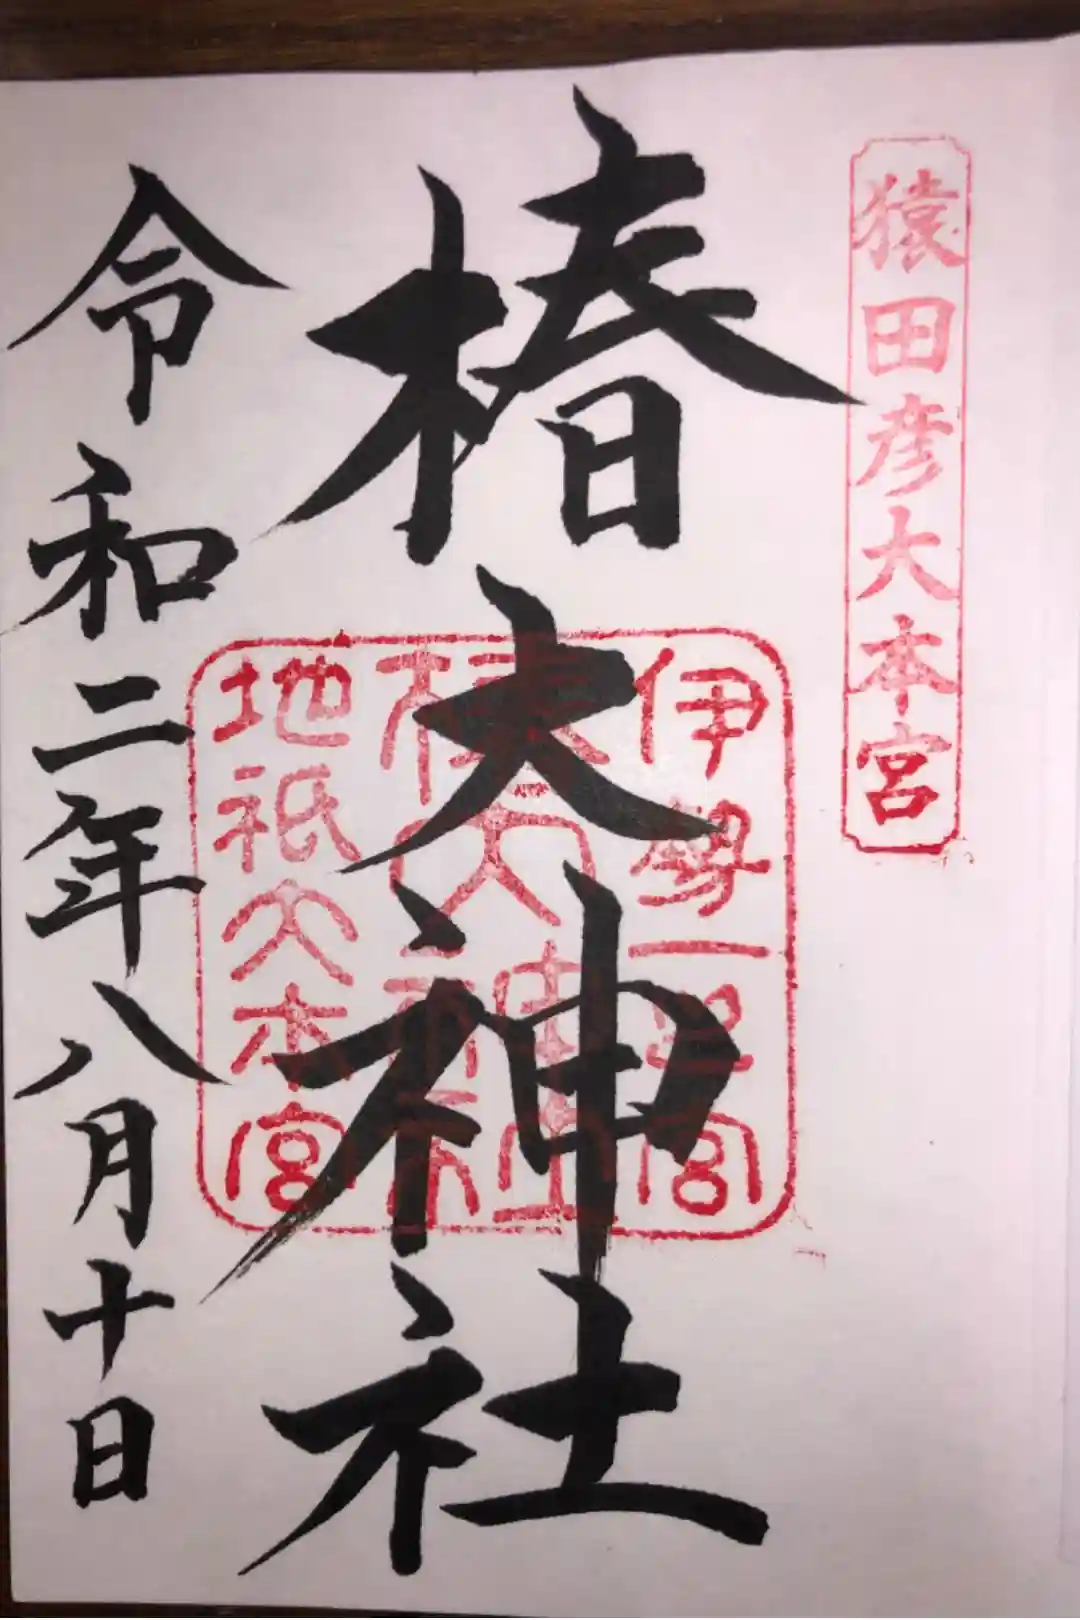 猿田彦大本宮
椿大神社
伊勢一之宮
椿大神社
地祇大本宮
令和二年八月十日